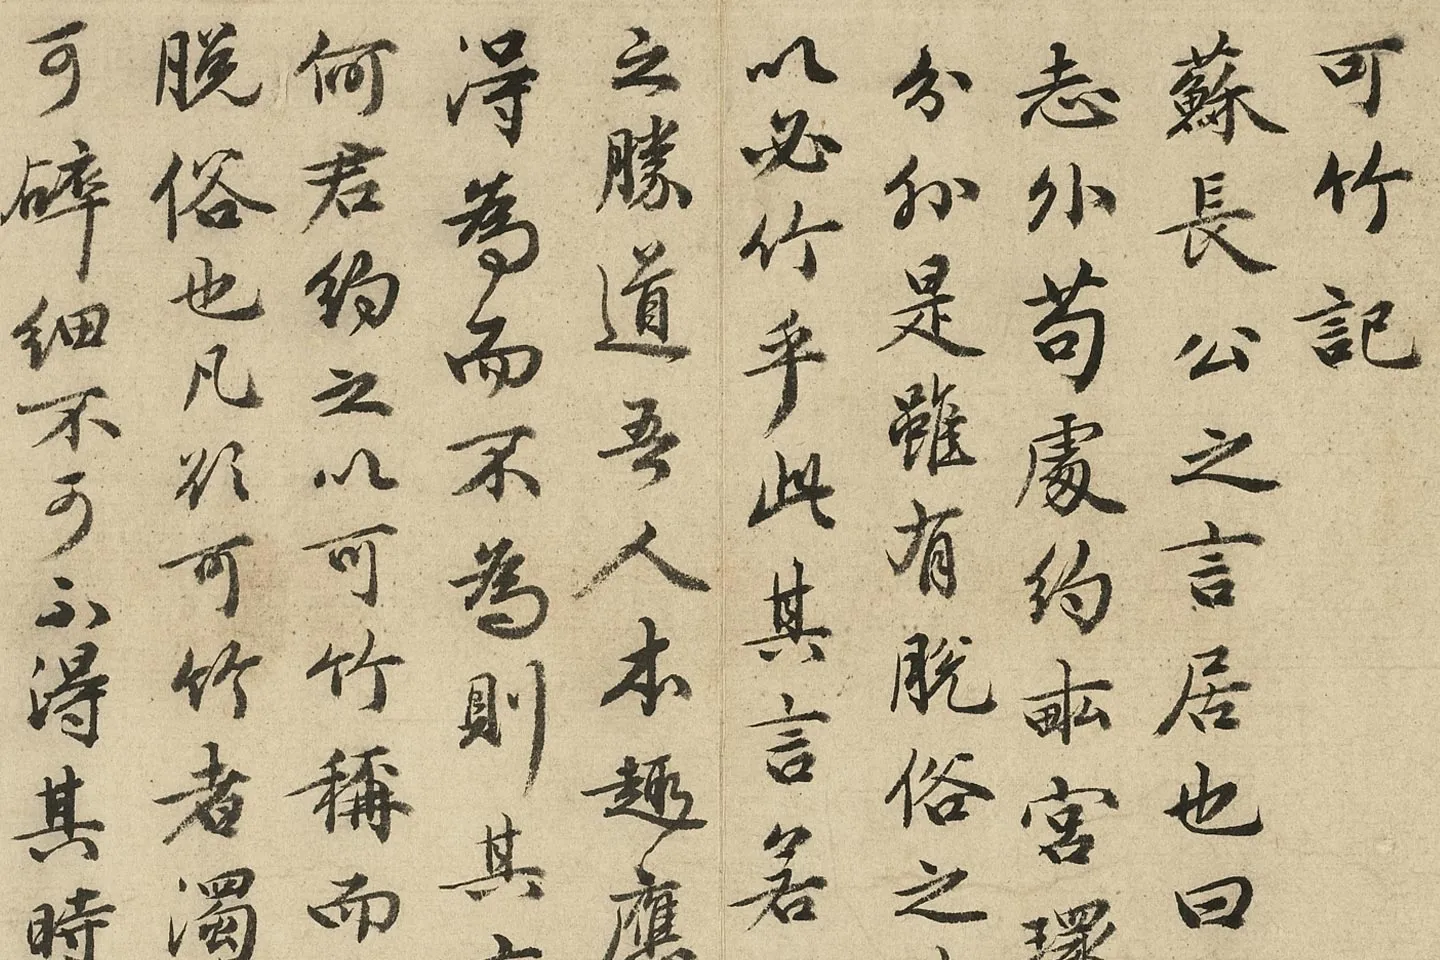 可竹記
蘇長公之言居也曰
志外苟處約畝宮環
分外是雖有脫俗之
以必竹乎此其言若
之勝道吾人本趣應
得為而不為則其
何君約之以可竹稱而
脫俗也凡欲可竹者濁
可碎細不可不得其時